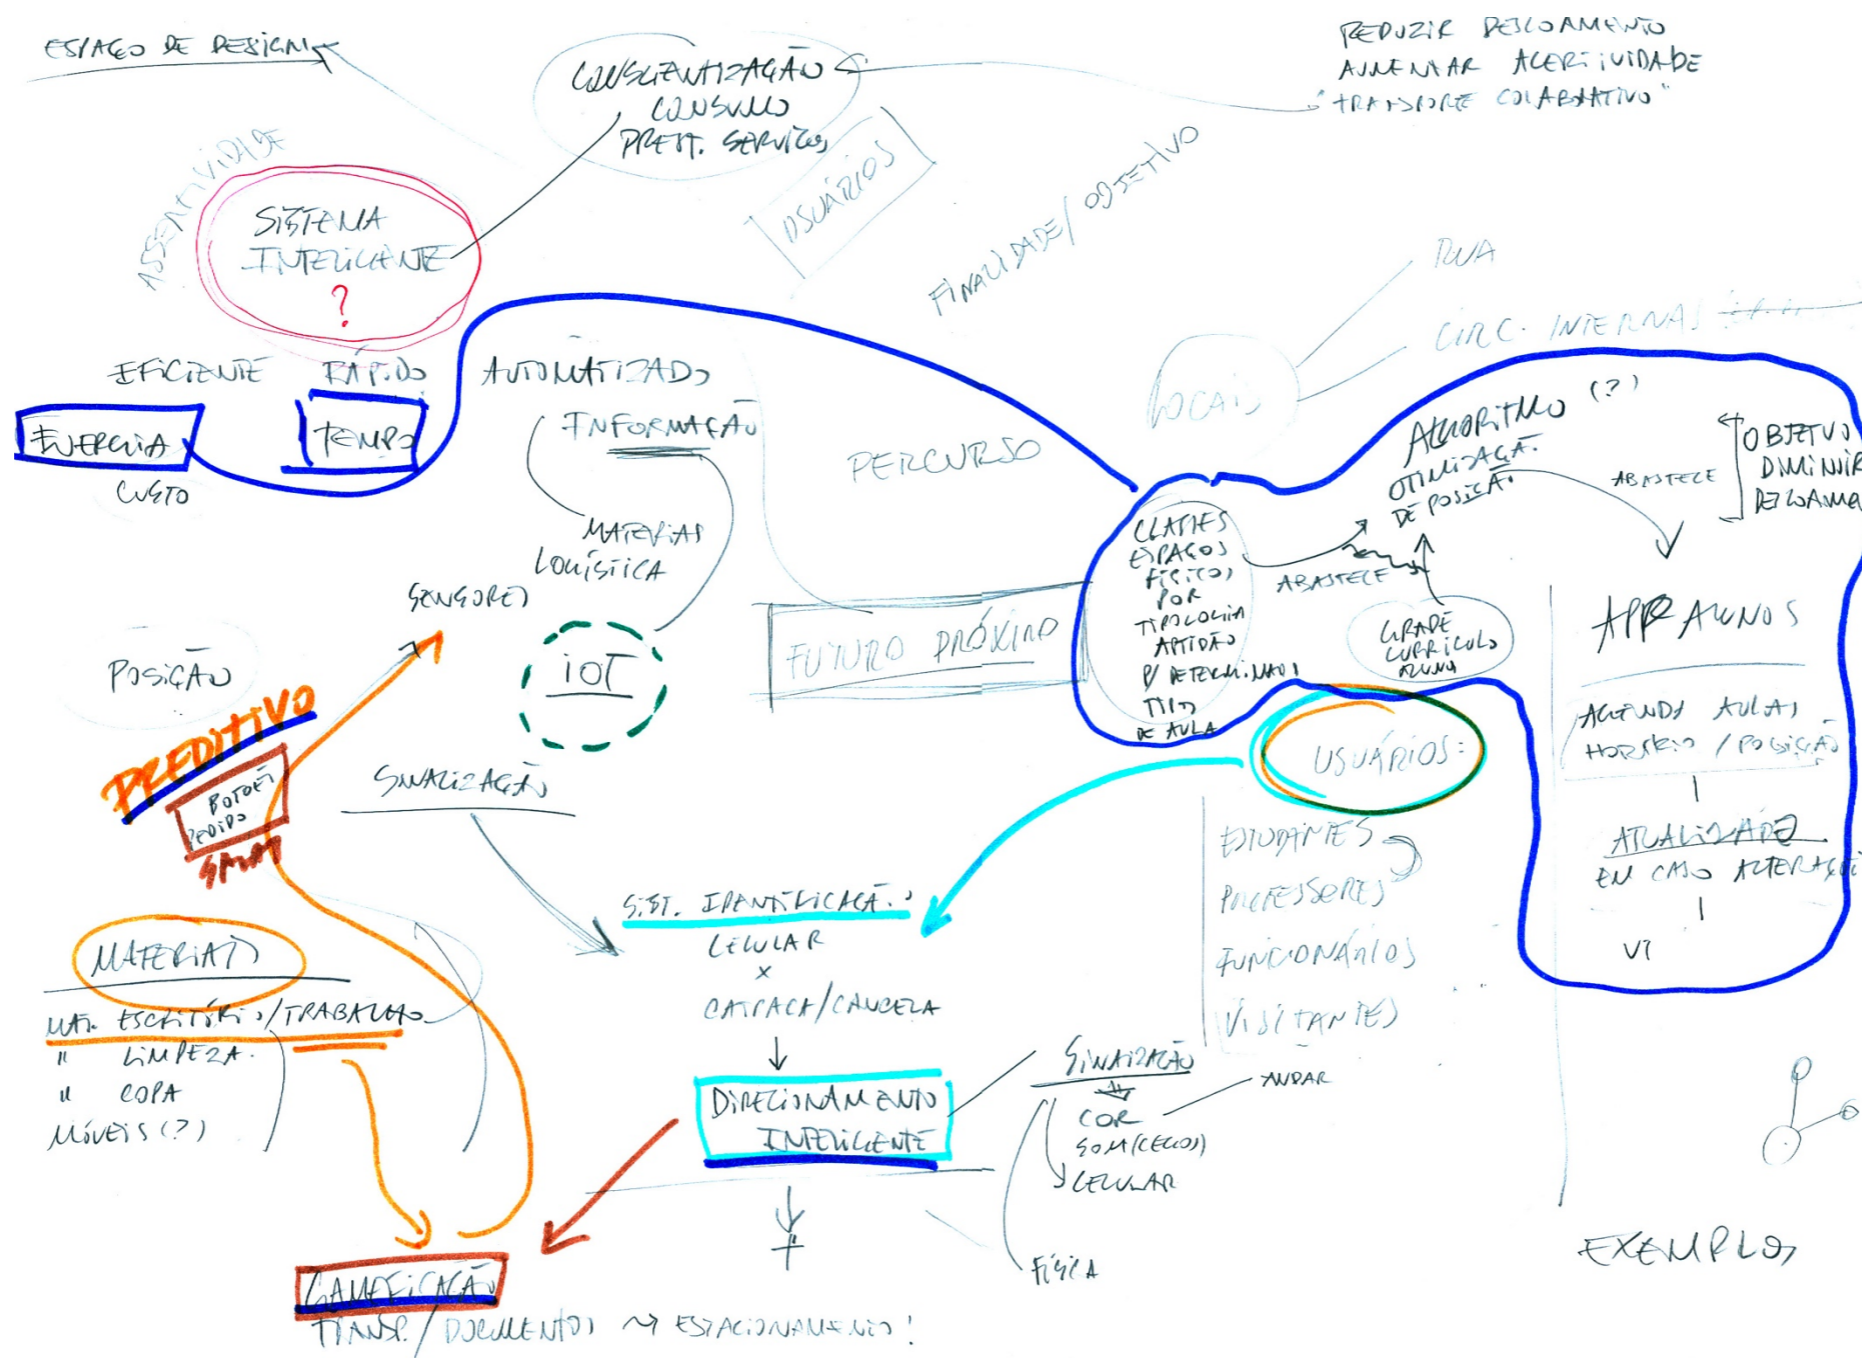 ESPAÇO DE DESIGN
CONSCIENTIZAÇÃO
CONSUMO
PREST. SERVIÇOS
REDUZIR DESLOAMENTO
AUMENTAR ACERTIVIDADE
"TRANSPORTE COLABORATIVO"
ASSERTIVIDADE
SISTEMA
INTELIGENTE
?
USUÁRIOS
FINALIDADE/OBJETIVO
RUA
CIRC. INTERNAS
LOCAIS
EFICIENTE
RÁPIDO
AUTOMATIZADO
ENERGIA
TEMPO
CUSTO
INFORMAÇÃO
MATERIAIS
LOGÍSTICA
PERCURSO
FUTURO PRÓXIMO
SENSORES
IOT
POSIÇÃO
PREDITIVO
BOTOẼS
PEDIDO
SINALIZAÇÃO
CLASSES
ESPAÇOS
FÍSICOS
POR
TIPOLOGIA
APTIDÃO
P/ DETERMINADOS
TIPOS
DE AULA
ABASTECE
ALGORITMO (?)
OTIMIZAÇÃ.
DE POSIÇÃO
GRADE
CURRÍCULO
ALUNO
ABASTECE
OBJETIVO
DIMINUIR
DESLOAME
APP ALUNOS
AGENDA AULAS
HORÁRIO / POSIÇÃO
ATUALIZADA
EM CASO ALTERAÇÕ
VI
USUÁRIOS:
ESTUDANTES
PROFESSORES
FUNCIONÁRIOS
VISITANTES
SIST. IDENTIFICAÇÃ.
CELULAR
X
CATRACA/CANCELA
DIRECIONAMENTO
INTELIGENTE
SINALIZAÇÃO
COR
ANDAR
SOM (CEGOS)
CELULAR
FÍSICA
MATERIAIS
MAT. ESCRITÓRIO/TRABALHO
" LIMPEZA.
" COPA
MÓVEIS (?)
GAMEFICAÇÃO
TRANSP./DOCUMENTOS → ESTACIONAMENTO!
EXEMPLOS